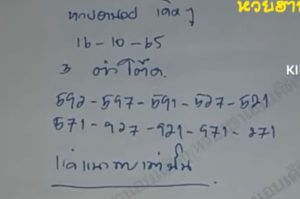 หวยฮานอย เด็ดๆ
16-10-65
3 ตัวโต๊ด
592-597-591-527-521
571-927-921-971-271
แค่แนวทางเท่านั้น
หวยฮา
KI